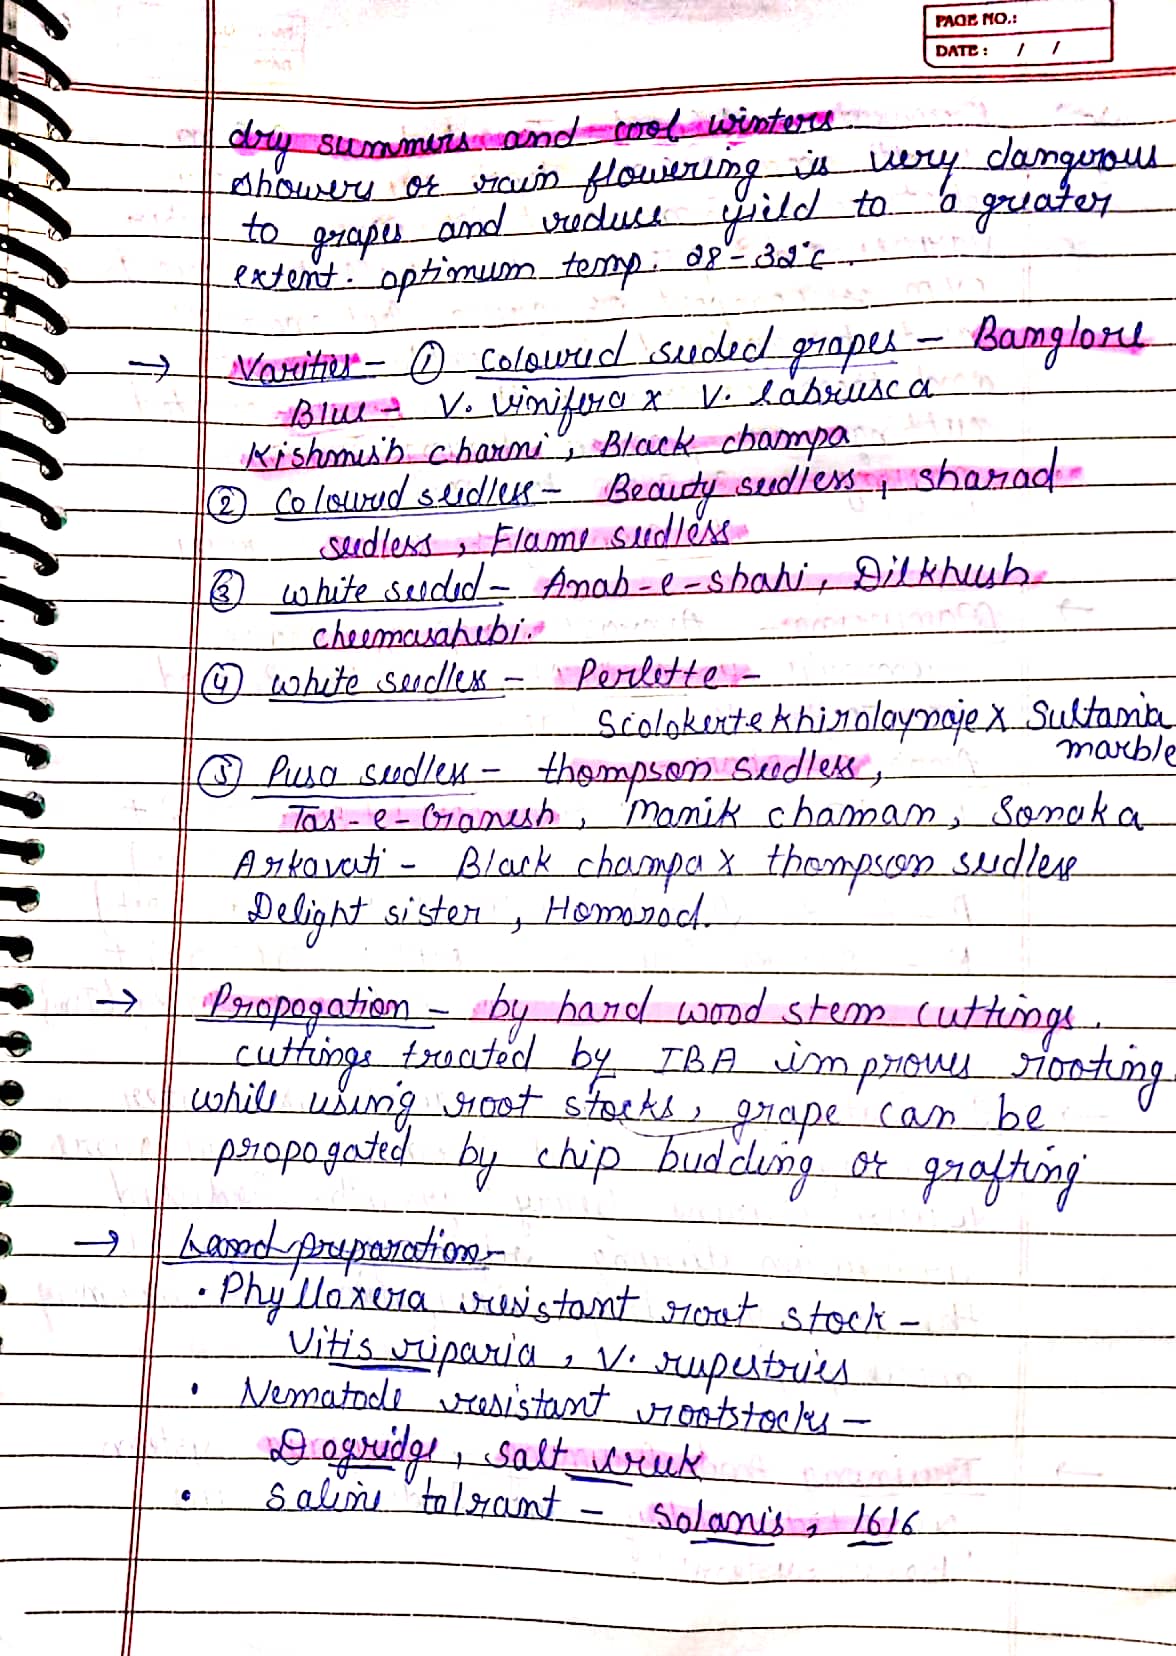 PAGE NO.:
DATE: / /
dry summers and cool winters
showers or rain flowering is very dangerous
to grapes and reduce yield to a greater
extent. optimum temp. 28-32°c.
→ Varities - ① Coloured seeded grapes - Banglore
Blue → V. vinifera x V. labrusca
Kishmish charni, Black champa
② Coloured seedless - Beauty seedless, sharad
seedless, Flame seedless
③ white seeded - Anab-e-shahi, Dilkhush
cheemasahebi.
④ white seedless - Perlette -
Scolokertekhiralaynaje X Sultania
marble
⑤ Pusa seedless - thompson seedless,
Tas-e-Ganesh, Manik chaman, Sonaka
Arkavati - Black champa x thompson seedless
Delight sister, Homorod.
→ Propogation - by hard wood stem cuttings.
cuttings treated by IBA improves rooting
while using root stocks, grape can be
propogated by chip budding or grafting
→ Land preparation -
• Phylloxera resistant root stock -
Vitis riparia, V. rupestries
• Nematode resistant rootstocks -
Dogridge, salt creek
• Saline tolrant - Solanis, 1616